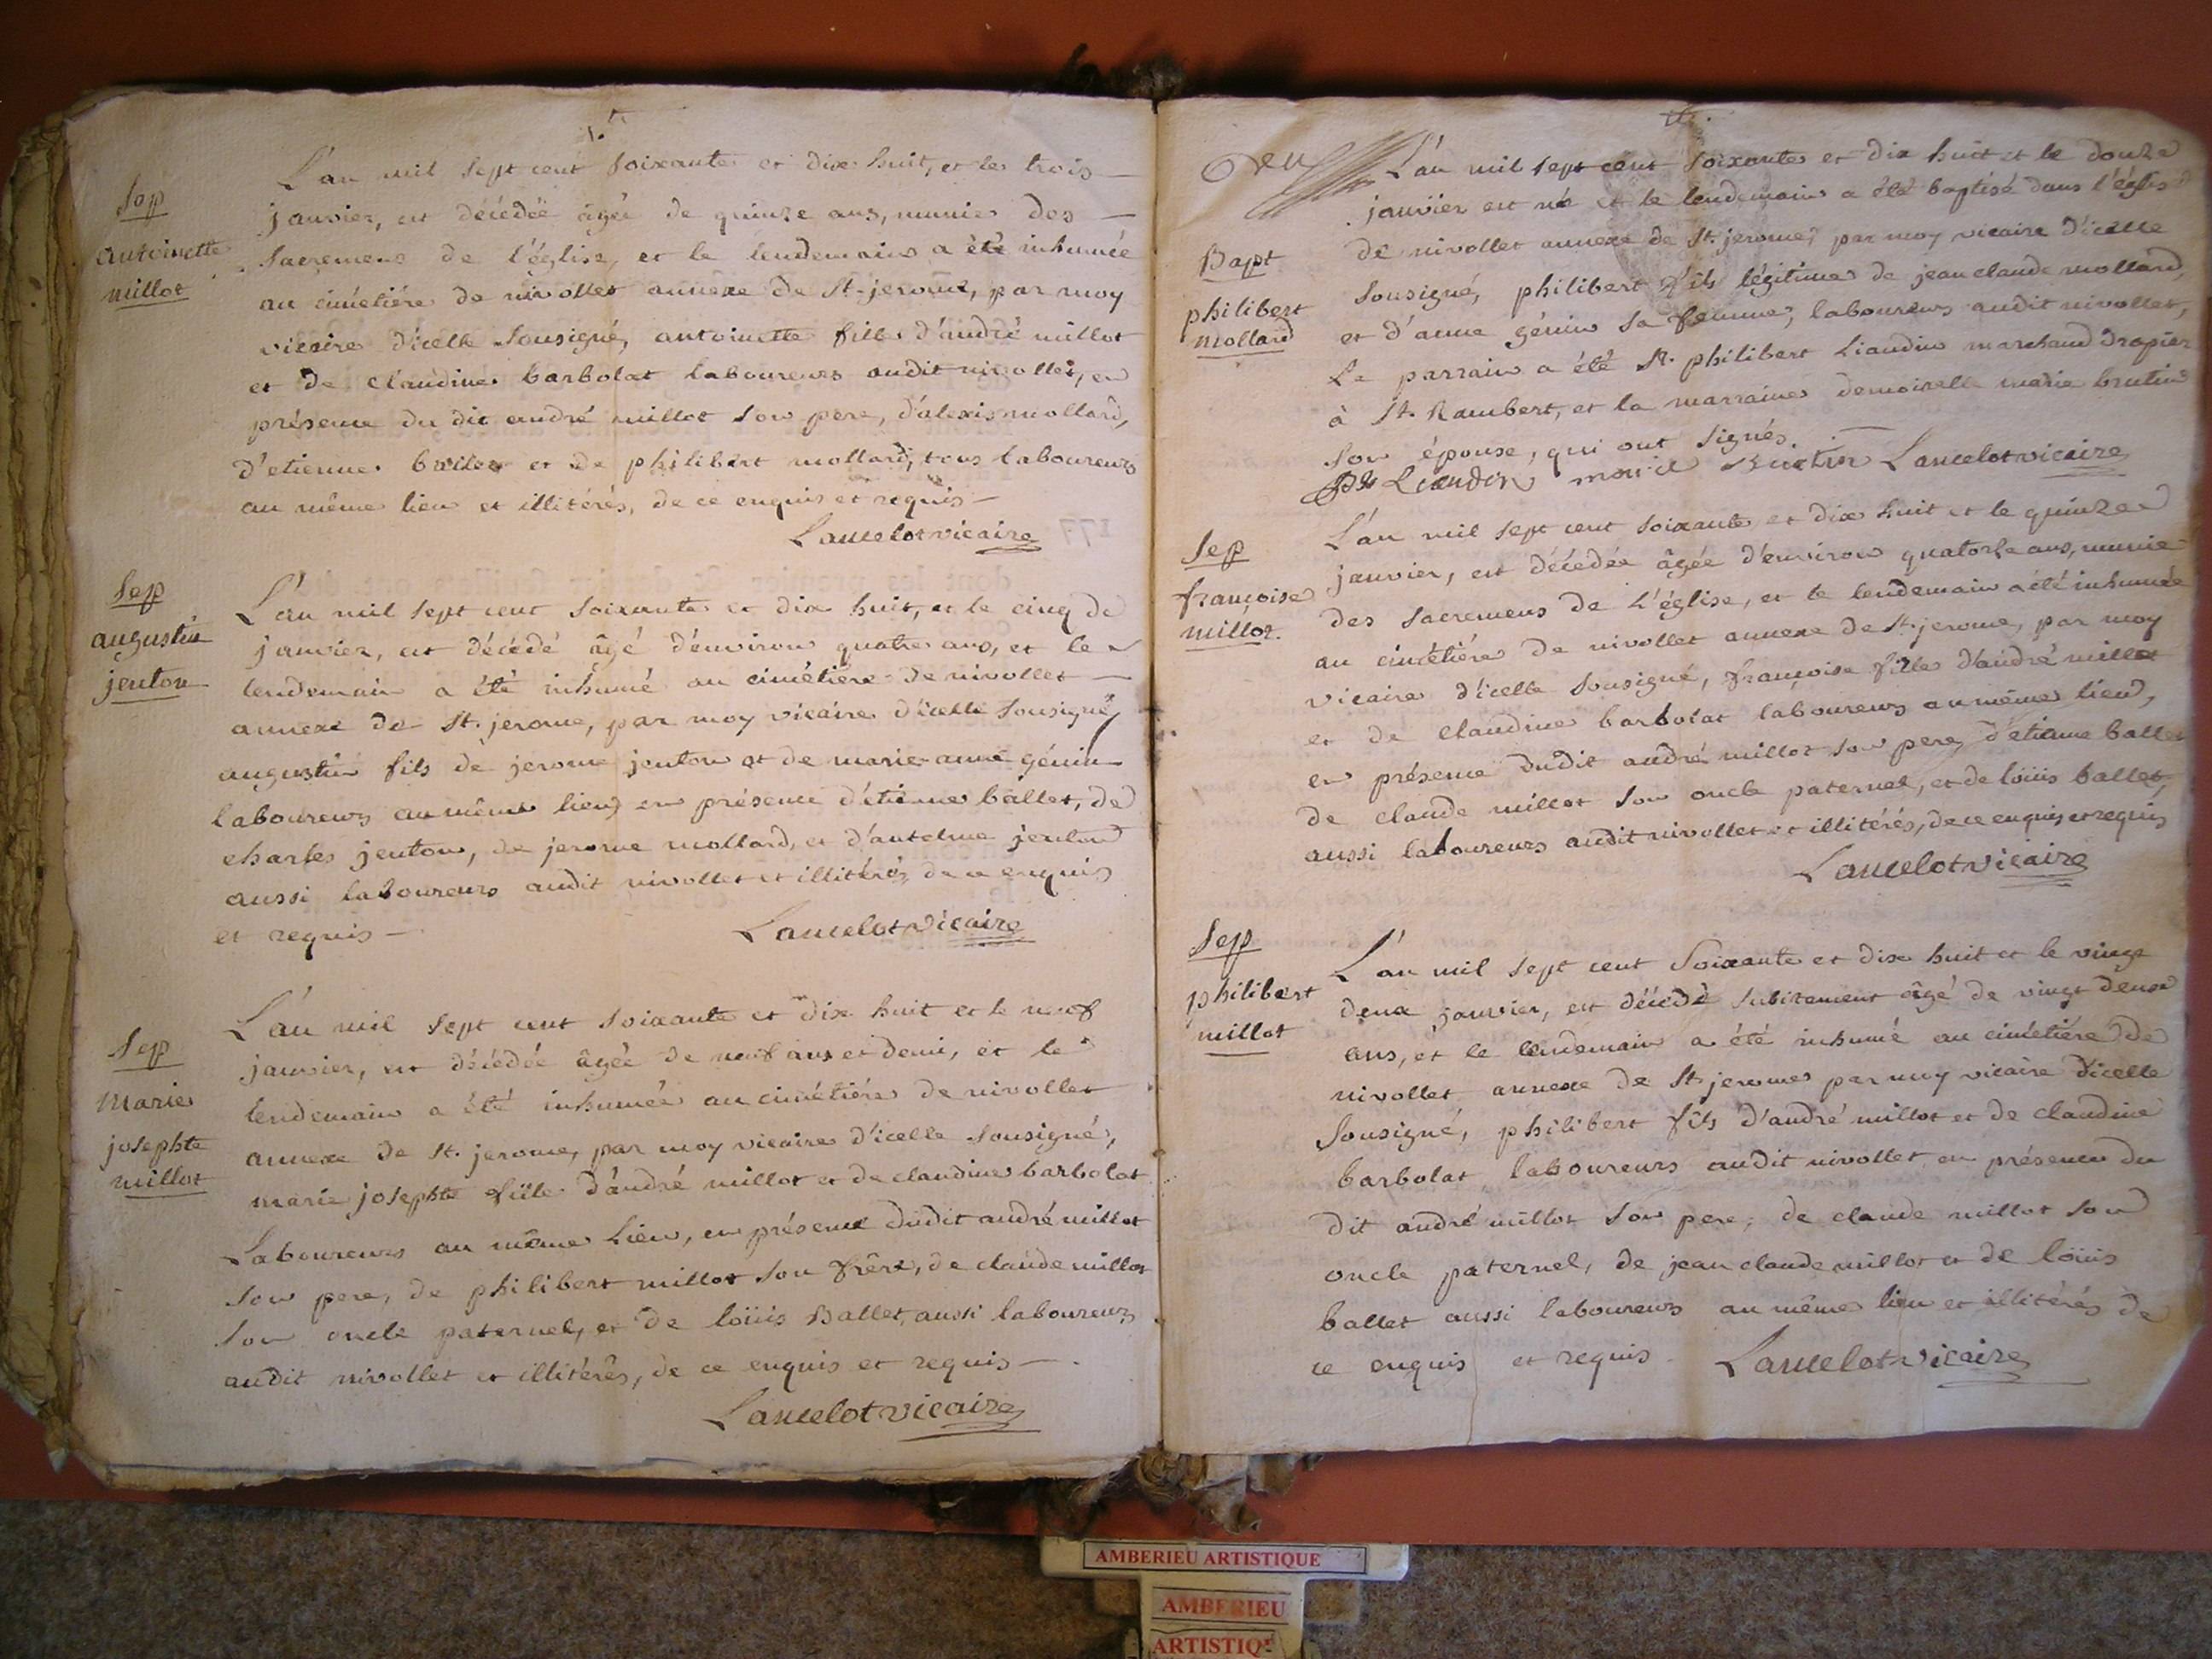 1.re
Sep
antoinette
millot
L'an mil sept cent soixante et dix huit, et le trois
janvier, est décédée âgée de quinze ans, munie des
sacremens de l'église, et le lendemain a été inhumée
au cimétiére de nivollet annexe de St. jerome, par moy
vicaire d'icelle sousigné, antoinette fille d'andré millot
et de claudine barbolat laboureurs audit nivollet, en
présence du dit andré millot son pere, d'alexis mollard,
d'etienne ballet et de philibert mollard, tous laboureurs
au même lieu et illitérés, de ce enquis et requis
Lancelot vicaire
Sep
augustin
jenton
L'an mil sept cent soixante et dix huit, et le cinq de
janvier, est décédé âgé d'environ quatre ans, et le
lendemain a été inhumé au cimétiére de nivollet
annexe de St. jerome, par moy vicaire d'icelle sousigné,
augustin fils de jerome jenton et de marie anne génin
laboureurs au même lieu, en présence d'etienne ballet, de
charles jenton, de jerome mollard, et d'antelme jenton
aussi laboureurs audit nivollet et illitérés, de ce enquis
et requis
Lancelot vicaire
Sep
marie
josephte
millot
L'an mil sept cent soixante et dix huit et le neuf
janvier, est décédée âgée de neuf ans et demi, et le
lendemain a été inhumée au cimétiére de nivollet
annexe de St. jerome, par moy vicaire d'icelle sousigné,
marie josephte fille d'andré millot et de claudine barbolat
Laboureurs au même Lieu, en présence dudit andré millot
son pere, de philibert millot son frére, de claude millot
son oncle paternel, et de loüis Ballet, aussi laboureurs
audit nivollet et illitérés, de ce enquis et requis
Lancelot vicaire
Bapt
philibert
mollard
L'an mil sept cent soixante et dix huit et le douze
janvier est né et le lendemain a été baptisé dans l'église
de nivollet annexe de St. jerome, par moy vicaire d'icelle
sousigné, philibert fils légitime de jean claude mollard,
et d'anne génin sa femme, laboureurs audit nivollet,
Le parrain a été Sr. philibert Liaudin marchand drapier
à St. Rambert, et la marraine demoiselle marie brutin
son épouse, qui ont signés.
Liaudin marie Brutin Lancelot vicaire
Sep
françoise
millot.
L'an mil sept cent soixante et dix huit et le quinze
janvier, est décédée âgée d'environ quatorze ans, munie
des sacremens de L'église, et le lendemain a été inhumée
au cimétiére de nivollet annexe de St. jerome, par moy
vicaire d'icelle sousigné, françoise fille d'andré millot
et de claudine barbolat laboureurs au même lieu,
en présence dudit andré millot son pere, d'etienne ballet
de claude millot son oncle paternel, et de loüis ballet,
aussi laboureurs audit nivollet et illitérés, de ce enquis et requis
Lancelot vicaire
Sep
philibert
millot
L'an mil sept cent soixante et dix huit et le vingt
deux janvier, est décédé subitement âgé de vingt deux
ans, et le lendemain a été inhumé au cimétiére de
nivollet annexe de St. jerome par moy vicaire d'icelle
sousigné, philibert fils d'andré millot et de claudine
barbolat laboureurs audit nivollet, en présence du
dit andré millot son pere, de claude millot son
oncle paternel, de jean claude millot et de loüis
ballet aussi laboureurs au même lieu et illitérés de
ce enquis et requis Lancelot vicaire
AMBERIEU ARTISTIQUE
AMBERIEU
ARTISTIQUE